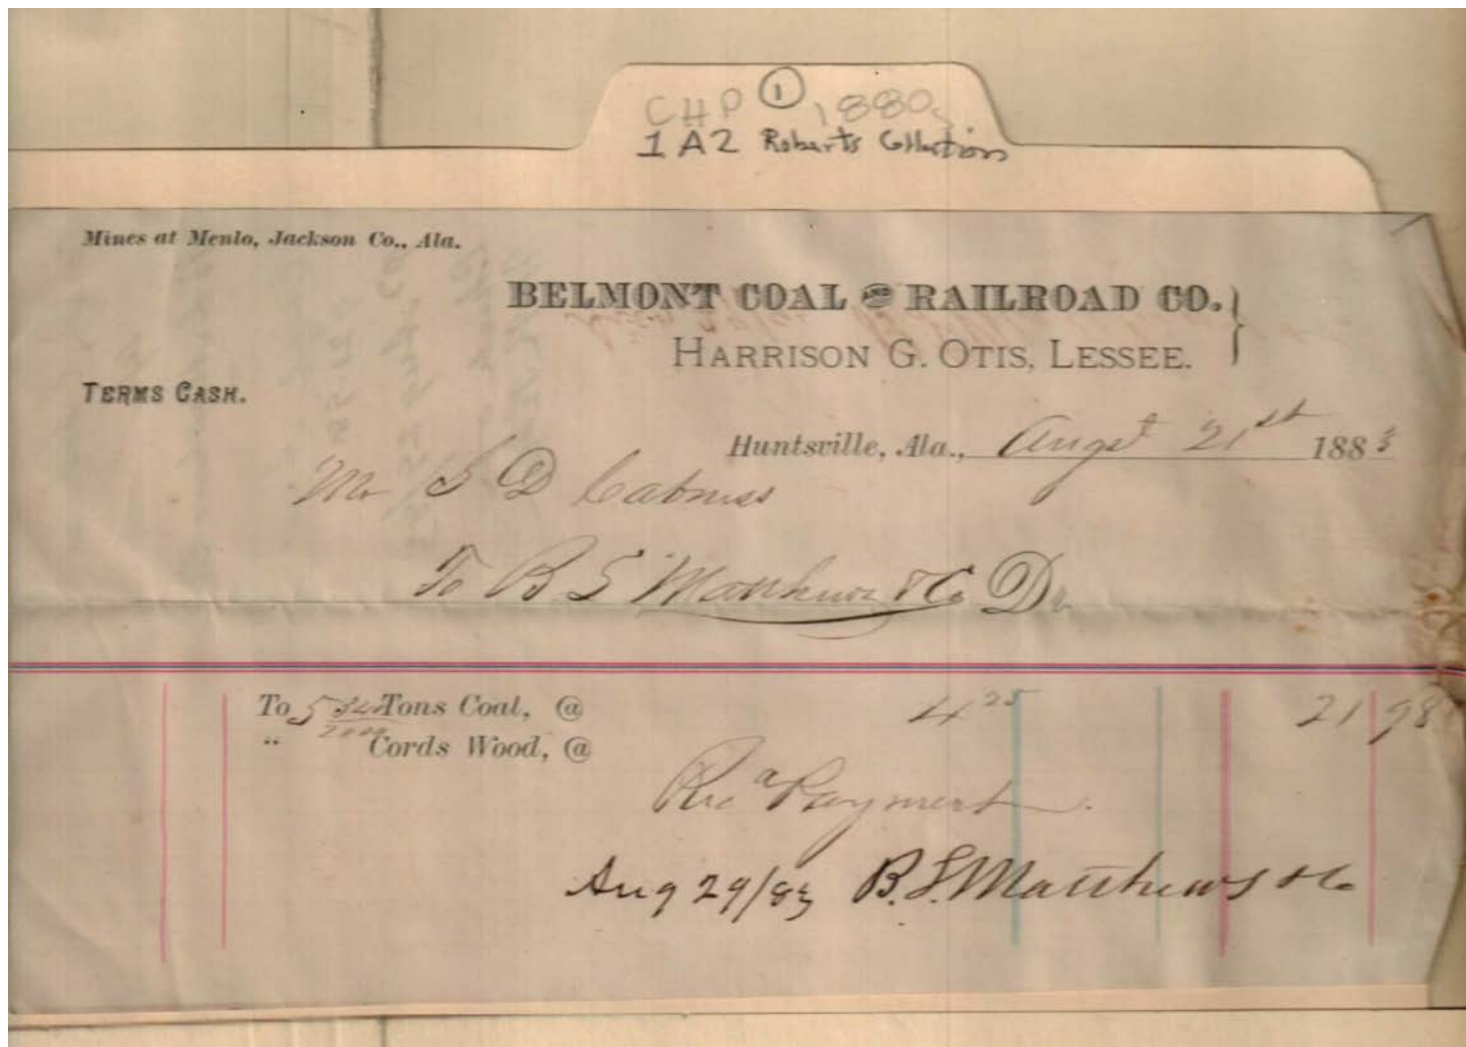 CHP 1 1880s
1A2 Roberts Collection
Mines at Menlo, Jackson Co., Ala.
BELMONT COAL AND RAILROAD CO.
HARRISON G. OTIS, LESSEE.
TERMS CASH.
Huntsville, Ala., Augst 21st 1883
Mr S D Cabaniss
To B S Matthews & Co Dr
To 5 Tons Coal, @ 4 25 21 98
" Cords Wood, @
Rec'd Payment
Aug 29/83 B. S. Matthews & Co